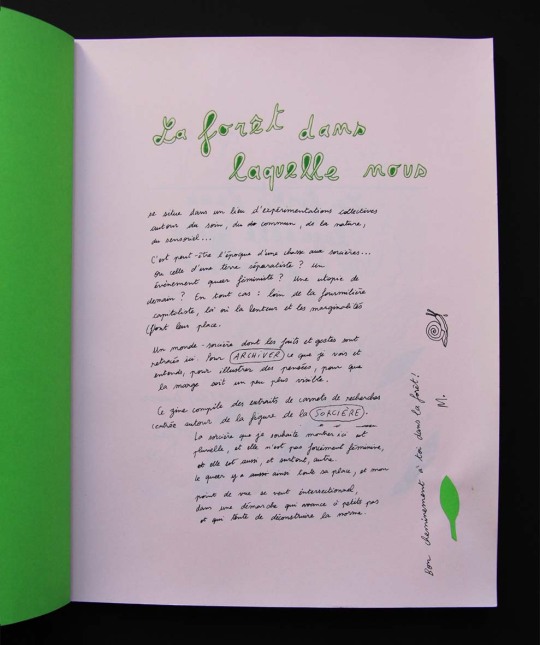 La forêt dans
laquelle nous
se situe dans un lieu d'expérimentations collectives
autour du soin, du commun, de la nature,
du sensoriel...
C'est peut-être l'époque d'une chasse aux sorcières...
ou celle d'une terre séparatiste ? Un
évènement queer féministe ? Une utopie de
demain ? En tout cas : loin de la fourmilière
capitaliste, là où la lenteur et les marginalités
font leur place.
Un monde-sorcière dont les faits et gestes sont
retracés ici. Pour ARCHIVER ce que je vois et
entends, pour illustrer des pensées, pour que
la marge soit un peu plus visible.
Ce zine compile des extraits de carnets de recherches
centrée autour de la figure de la SORCIÈRE.
La sorcière que je souhaite montrer ici est
plurielle, et elle n'est pas forcément féminine,
et elle est aussi, et surtout, autre.
Le queer y a aussi toute sa place, et mon
point de vue se veut intersectionnel,
dans une démarche qui avance à petits pas
et qui tente de déconstruire la norme.
Bon cheminement à toi dans la forêt !
M.